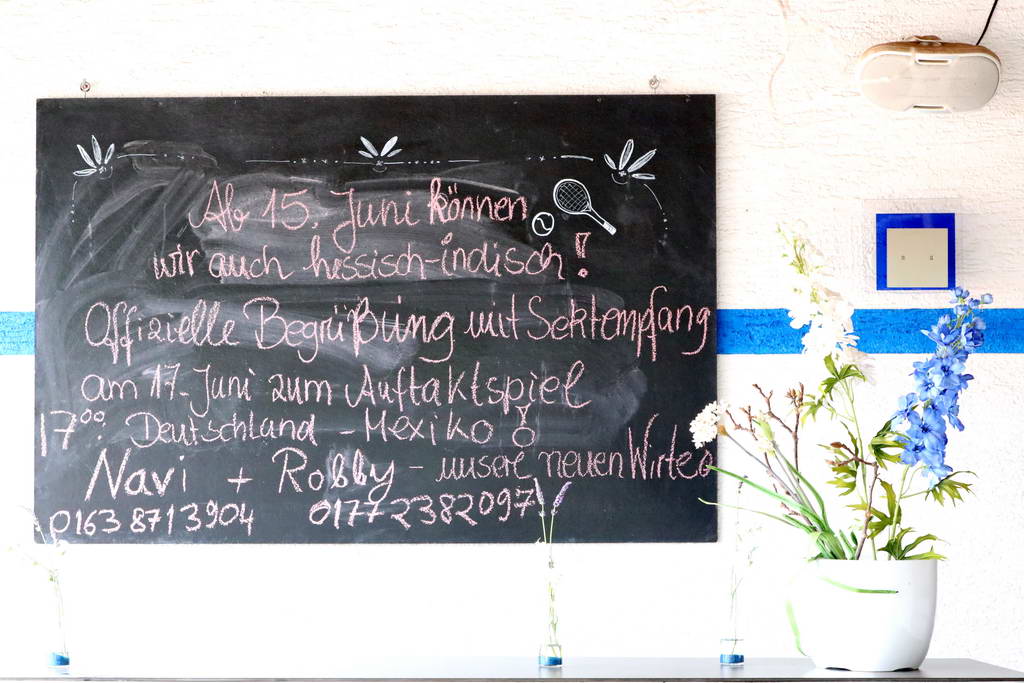 Ab 15. Juni können
wir auch hessisch-indisch!
Offizielle Begrüßung mit Sektempfang
am 17. Juni zum Auftaktspiel
17⁰⁰ Deutschland - Mexiko!
Navi + Robby - unsere neuen Wirte
0163 8713904 0177 2382097